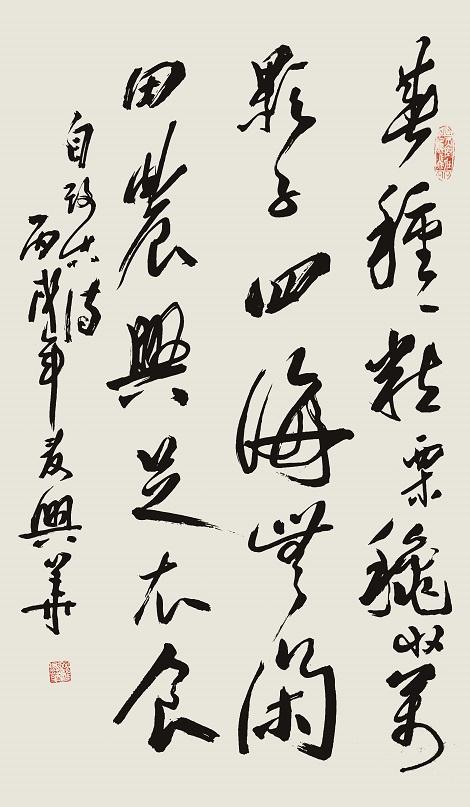 春種一粒粟穐收萬
顆子四海無閑
田農興足衣食
自改古詩
丙戌年興華